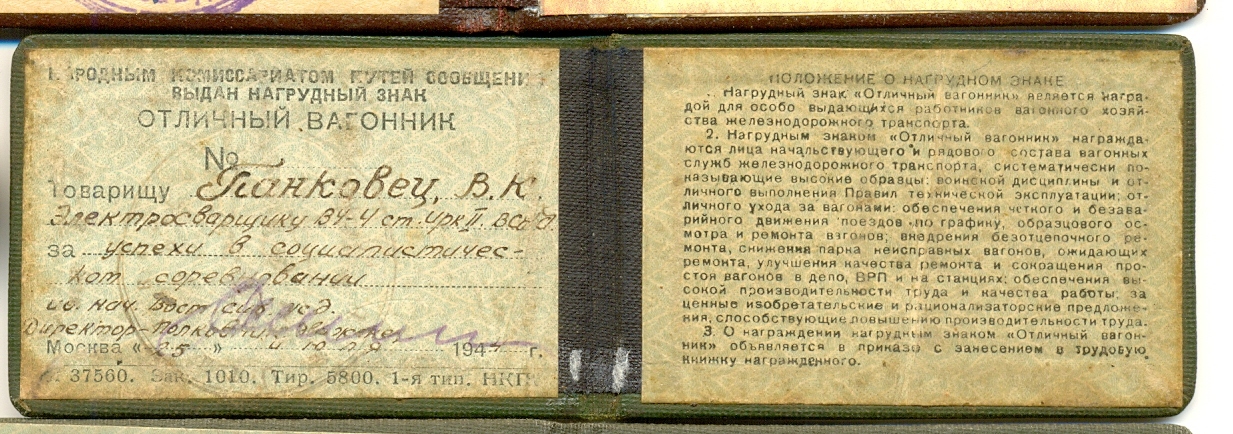 НАРОДНЫМ КОМИССАРИАТОМ ПУТЕЙ СООБЩЕНИЯ
ВЫДАН НАГРУДНЫЙ ЗНАК
ОТЛИЧНЫЙ ВАГОННИК
№
Товарищу Панковец, В.К.
Электросварщику ВЧ-4 ст.
за успехи в социалистичес-
ком соревновании
Москва « 25 » июля 194 г.
37560. Зак. 1010. Тир. 5800. 1-я тип.
ПОЛОЖЕНИЕ О НАГРУДНОМ ЗНАКЕ
. Нагрудный знак «Отличный вагонник» является награ-
дой для особо выдающихся работников вагонного хозяй-
ства железнодорожного транспорта.
2. Нагрудным знаком «Отличный вагонник» награжда-
ются лица начальствующего и рядового состава вагонных
служб железнодорожного транспорта, систематически по-
казывающие высокие образцы: воинской дисциплины и от-
личного выполнения Правил технической эксплуатации; от-
личного ухода за вагонами: обеспечения чёткого и безава-
рийного движения поездов по графику, образцового ос-
мотра и ремонта вагонов; внедрения безотцепочного ре-
монта, снижения парка неисправных вагонов, ожидающих
ремонта, улучшения качества ремонта и сокращения про-
стоя вагонов в депо, ВРП и на станциях; обеспечения вы-
сокой производительности труда и качества работы; за
ценные изобретательские и рационализаторские предложе-
ния, способствующие повышению производительности труда.
3. О награждении нагрудным знаком «Отличный вагон-
ник» объявляется в приказе с занесением в трудовую
книжку награжденного.